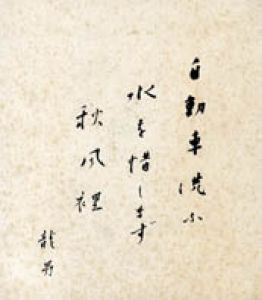 自動車洗ふ
水を惜します
秋風裡